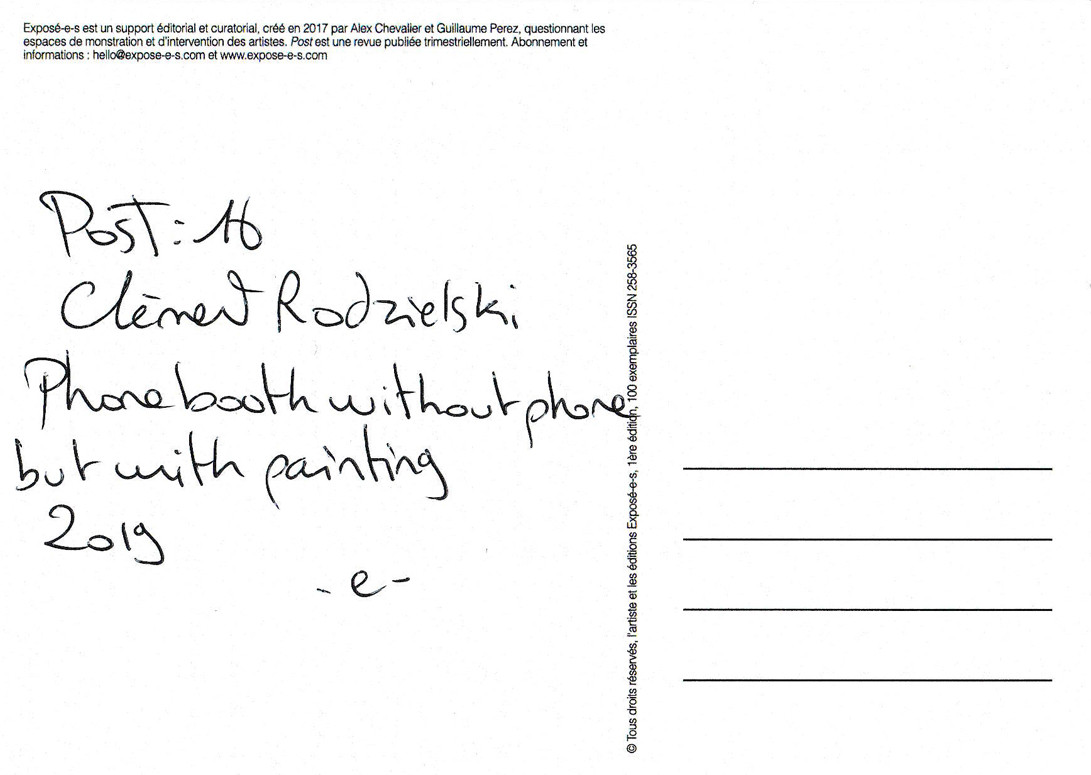 Exposé-e-s est un support éditorial et curatorial, créé en 2017 par Alex Chevalier et Guillaume Perez, questionnant les
espaces de monstration et d'intervention des artistes. Post est une revue publiée trimestriellement. Abonnement et
informations : hello@expose-e-s.com et www.expose-e-s.com
Post : 16
Clément Rodzielski
Phone booth without phone
but with painting
2019
-e-
© Tous droits réservés, l'artiste et les éditions Exposé-e-s, 1ère édition, 100 exemplaires ISSN 258-3565